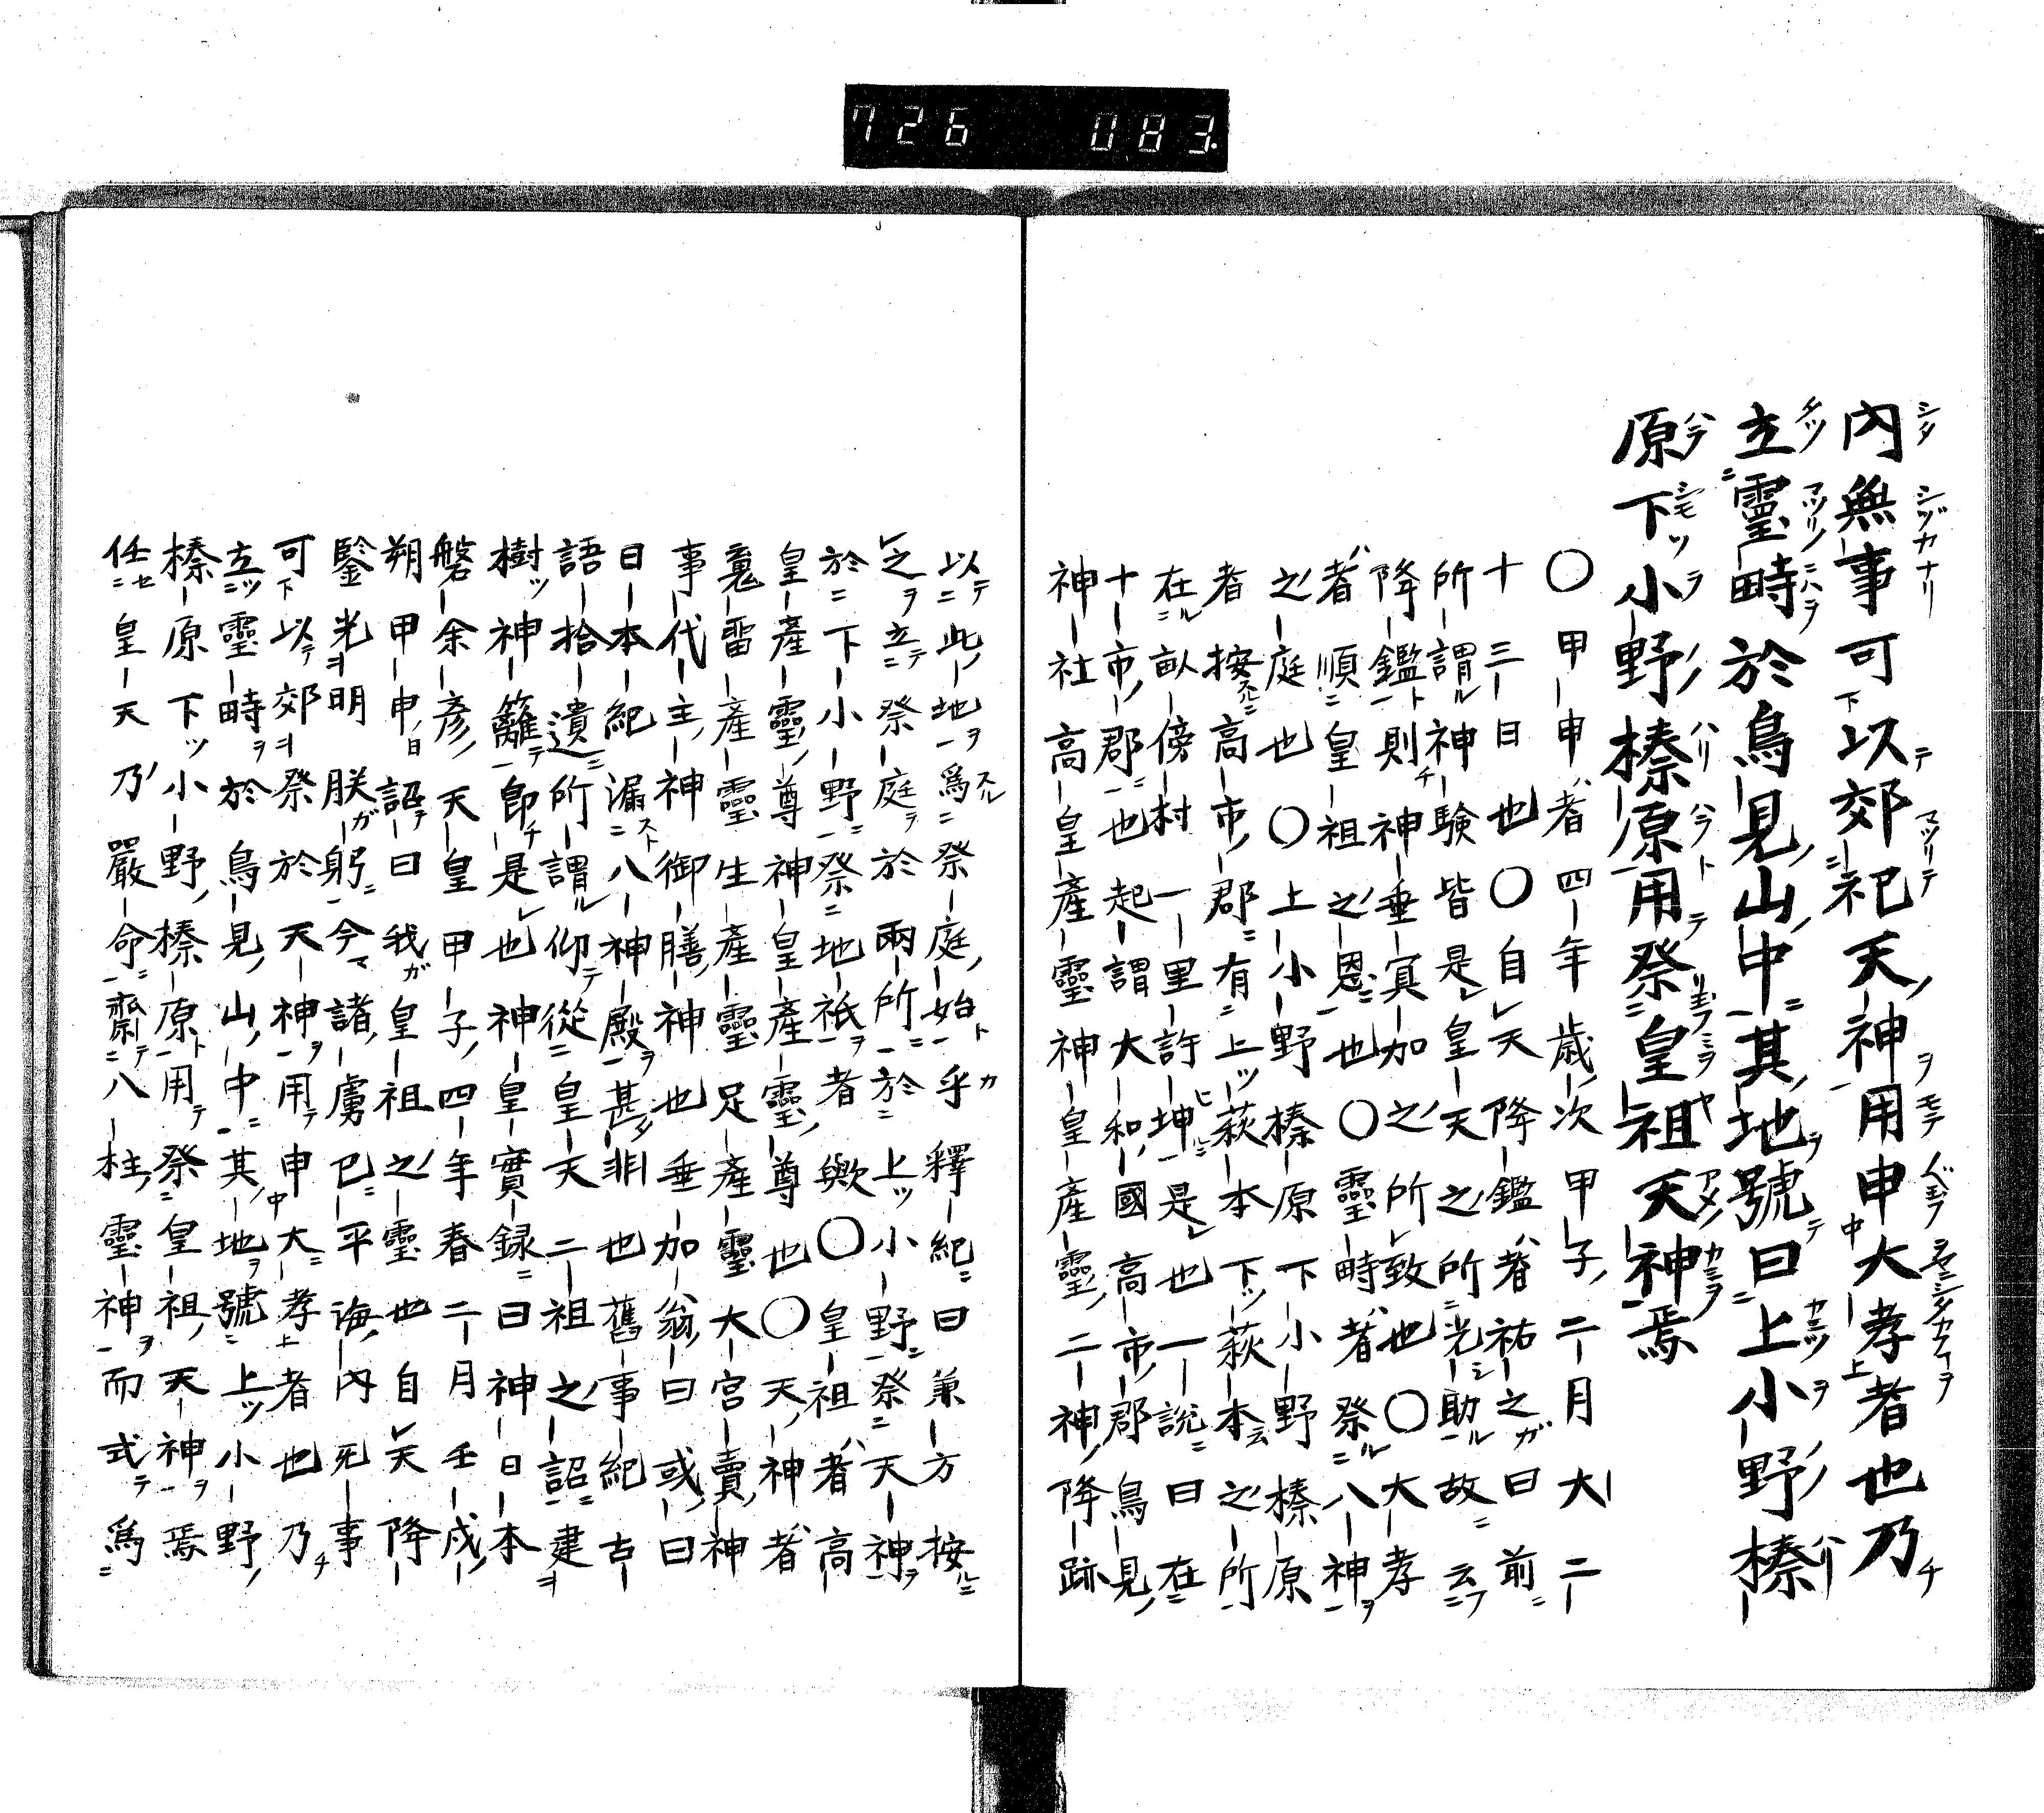 726 083
內無事可以郊祀天神用申大孝者也乃
立靈畤於鳥見山中其地號曰上小野榛
原下小野榛原用祭皇祖天神焉
〇甲申者四年歲次甲子二月大二
十三日也〇自天降鑑者祐之曰前
所謂神驗皆是皇天之所光助故云
降鑑則神垂冥加之所致也〇大孝
者順皇祖之恩也〇靈畤者祭八神
之庭也〇上小野榛原下小野榛原
者按高市郡有上萩本下萩本之所
在畝傍村一里許坤是也一說曰在
十市郡也起謂大和國高市郡鳥見
神社高皇產靈神皇產靈二神降跡
以此地爲祭庭始乎釋紀曰兼方按
之立祭庭於兩所於上小野祭天神
於下小野祭地祇者歟〇皇祖者高
皇產靈尊神皇產靈尊也〇天神者
䰟留產靈生產靈足產靈大宮賣神
事代主神御膳神也垂加翁曰或曰
日本紀漏八神殿甚非也舊事紀古
語拾遺所謂仰從皇天二祖之詔建
樹神籬卽是也神皇實錄曰神日本
磐余彥天皇甲子四年春二月壬戌
朔甲申詔曰我皇祖之靈也自天降
鑒光明朕躬今諸虜已平海內无事
可以郊祭於天神用申大孝者也乃
立靈畤於鳥見山中其地號上小野
榛原下小野榛原用祭皇祖天神焉
任皇天乃嚴命齋八柱靈神而式爲